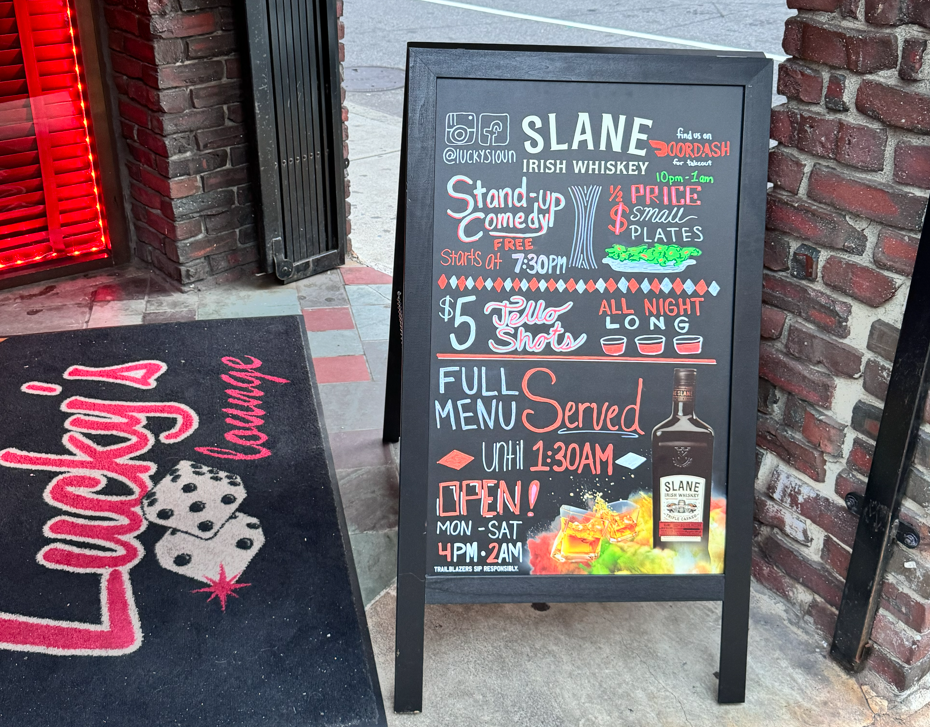 Lucky's
lounge
@luckysloun
SLANE
IRISH WHISKEY
find us on
DOORDASH
for takeout
Stand-up
Comedy
FREE
Starts at 7:30PM
10pm-1am
½ PRICE
$ small
PLATES
$5 Jello
Shots
ALL NIGHT
LONG
FULL
MENU Served
until 1:30AM
OPEN!
MON - SAT
4PM - 2AM
TRAILBLAZERS SIP RESPONSIBLY.
SLANE
SLANE
IRISH WHISKEY
TRIPLE CASKED